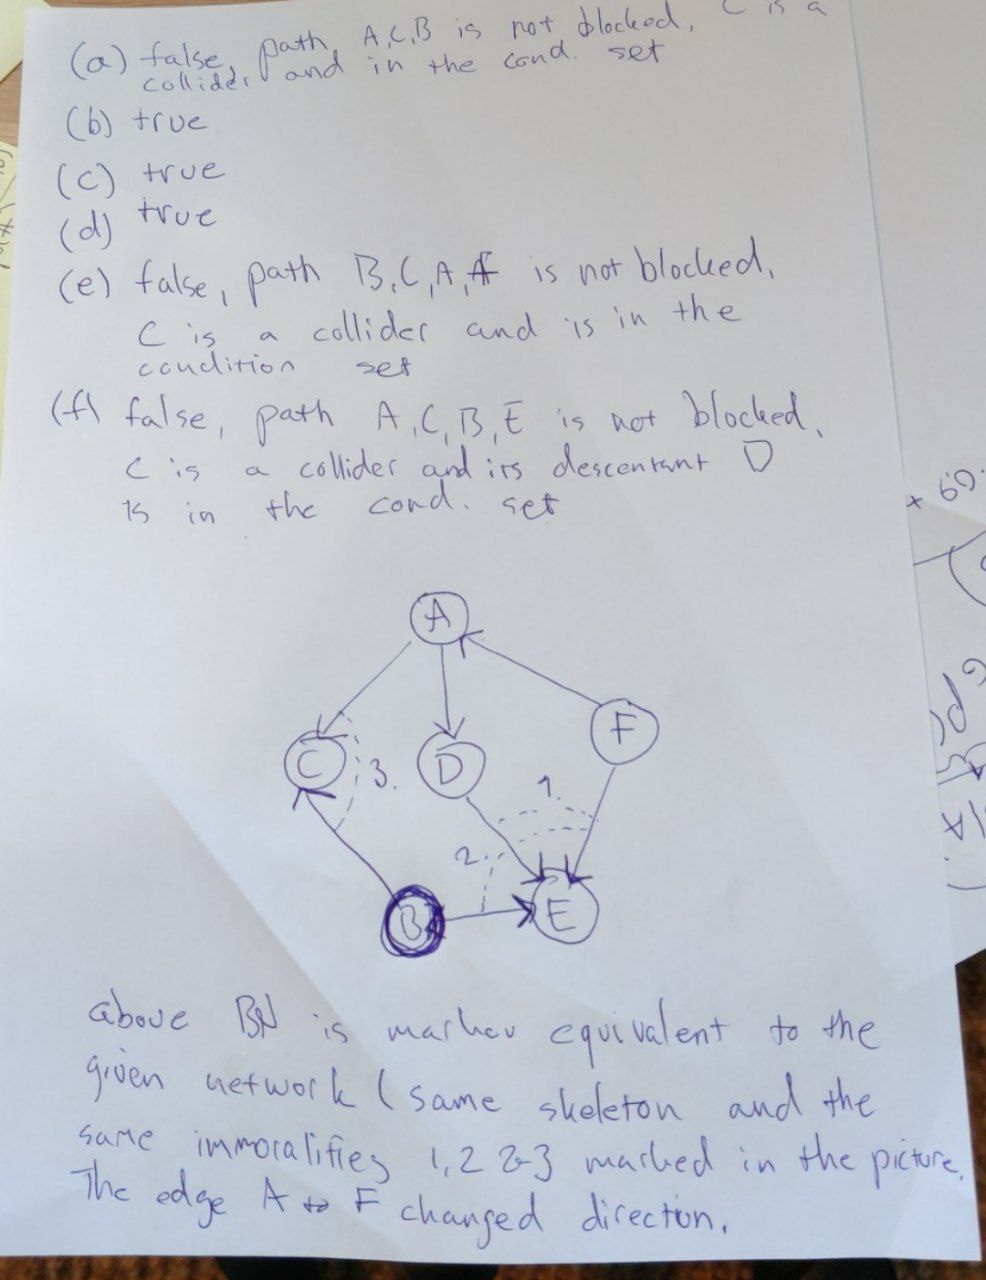 (a) false, path A,C,B is not blocked, C is a
collider and in the cond. set
(b) true
(c) true
(d) true
(e) false, path B,C,A,F is not blocked,
C is a collider and is in the
condition set
(f) false, path A,C,B,E is not blocked,
C is a collider and its descentant D
is in the cond. set
A
F
C
3.
D
1.
2.
B
E
above BN is markov equivalent to the
given network (same skeleton and the
same immoralities 1,2 & 3 marked in the picture.
The edge A to F changed direction.